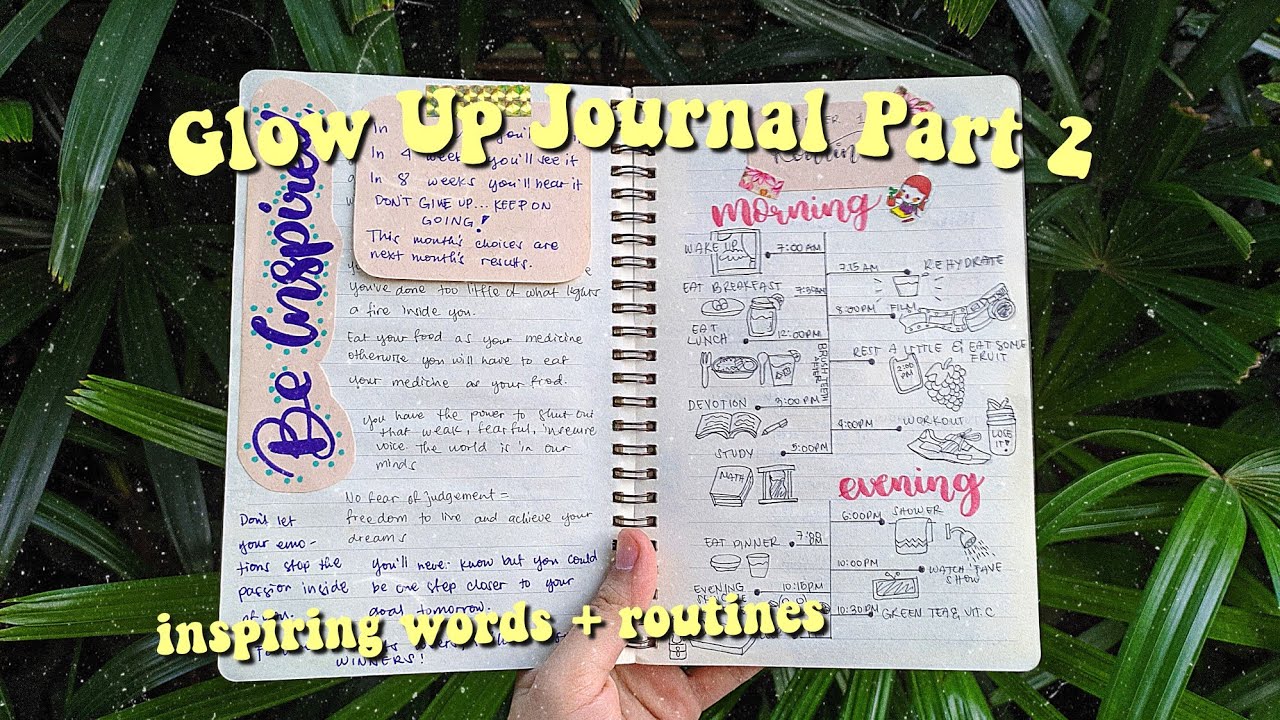 Glow Up Journal Part 2
Be Inspired
In you'll
In 4 weeks you'll see it
In 8 weeks you'll hear it
DON'T GIVE UP... KEEP ON
GOING!
This month's choices are
next month's results.
you've done too little of what lights
a fire inside you.
Eat your food as your medicine
otherwise you will have to eat
your medicine as your food.
you have the power to shut out
that weak, fearful, insecure
voice the world is in our
minds
No fear of judgement =
freedom to live and achieve your
dreams
Don't let
your emo-
tions stop the
passion inside
of you.
you'll never know but you could
be one step closer to your
goal tomorrow.
WINNERS!
morning
WAKE UP
7:00 AM
7:15 AM
REHYDRATE
EAT BREAKFAST
7:30AM
8:00PM
FILM
EAT
LUNCH
12:00PM
BRUSH TEETH
AFTER
REST A LITTLE & EAT SOME
FRUIT
2:00
PM
DEVOTION
3:00PM
4:00PM
WORKOUT
LOSE
IT!
STUDY
5:00PM
MATH
evening
6:00PM
SHOWER
EAT DINNER
10:00PM
WATCH
SHOW
EVENING
10:15PM
10:30PM
GREEN TEA & VIT. C
inspiring words + routines